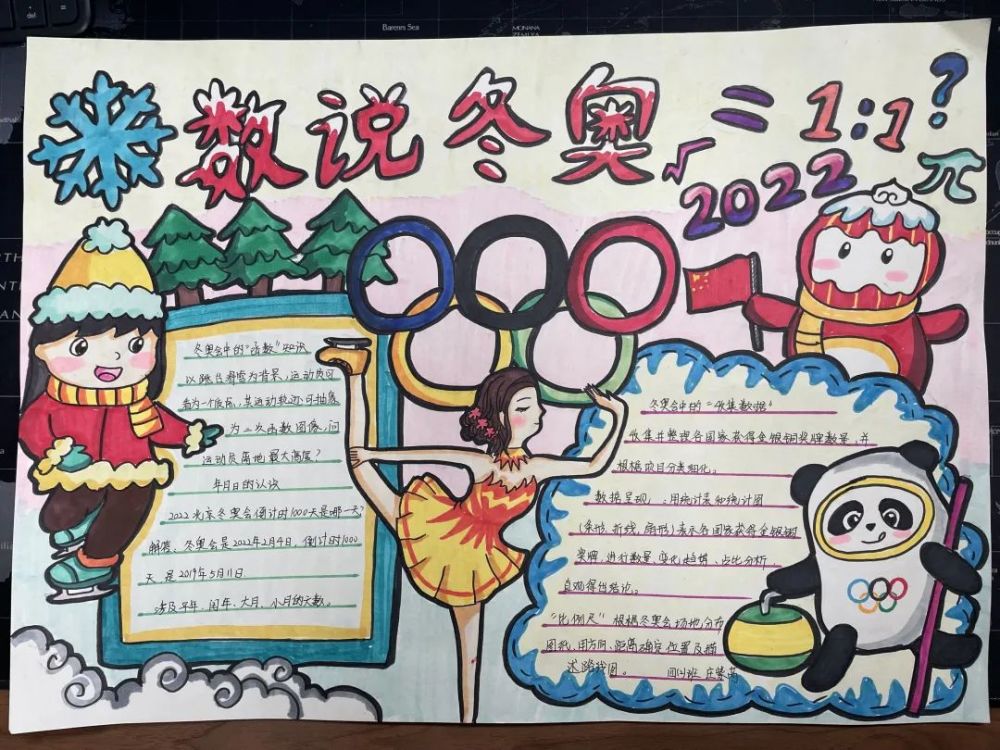 数说冬奥
=
1:1
?
√
2022
元
冬奥会中的“函数”知识
以跳台滑雪为背景,运动员可
看为一个质点,其运动轨迹可抽象
为二次函数图像,问
运动员离地最大高度?
年月日的认识
2022北京冬奥会倒计时1000天是哪一天?
解答:冬奥会是2022年2月4日,倒计时1000
天是2019年5月11日
涉及平年、闰年、大月、小月的天数。
冬奥会中的“收集数据”
收集并整理各国家获得金银铜奖牌数量,并
根据项目分类细化。
数据呈现,:用统计表和统计图
(条形、折线、扇形)表示各国家获得金银铜
奖牌,进行数量、变化趋势、占比分析,
直观得出结论。
“比例尺”根据冬奥会场地分布
图我,用方向、距离确定位置及描
述路线图。
四(4)班